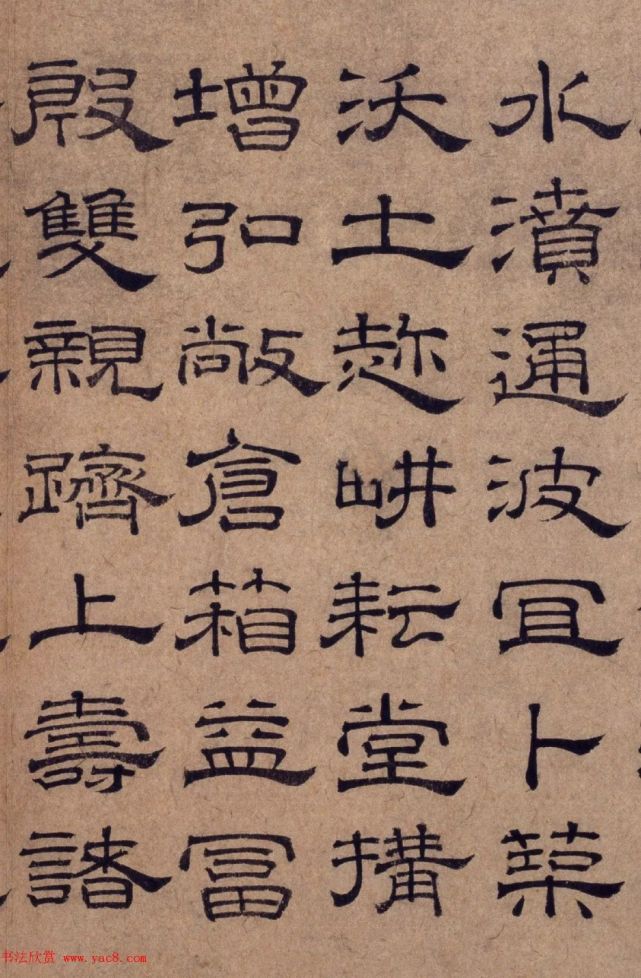 水濆通波冝卜築
沃土趂畊耘堂搆
增弘敞倉箱益冨
殷雙親躋上壽諧
书法欣赏 www.yac8.com